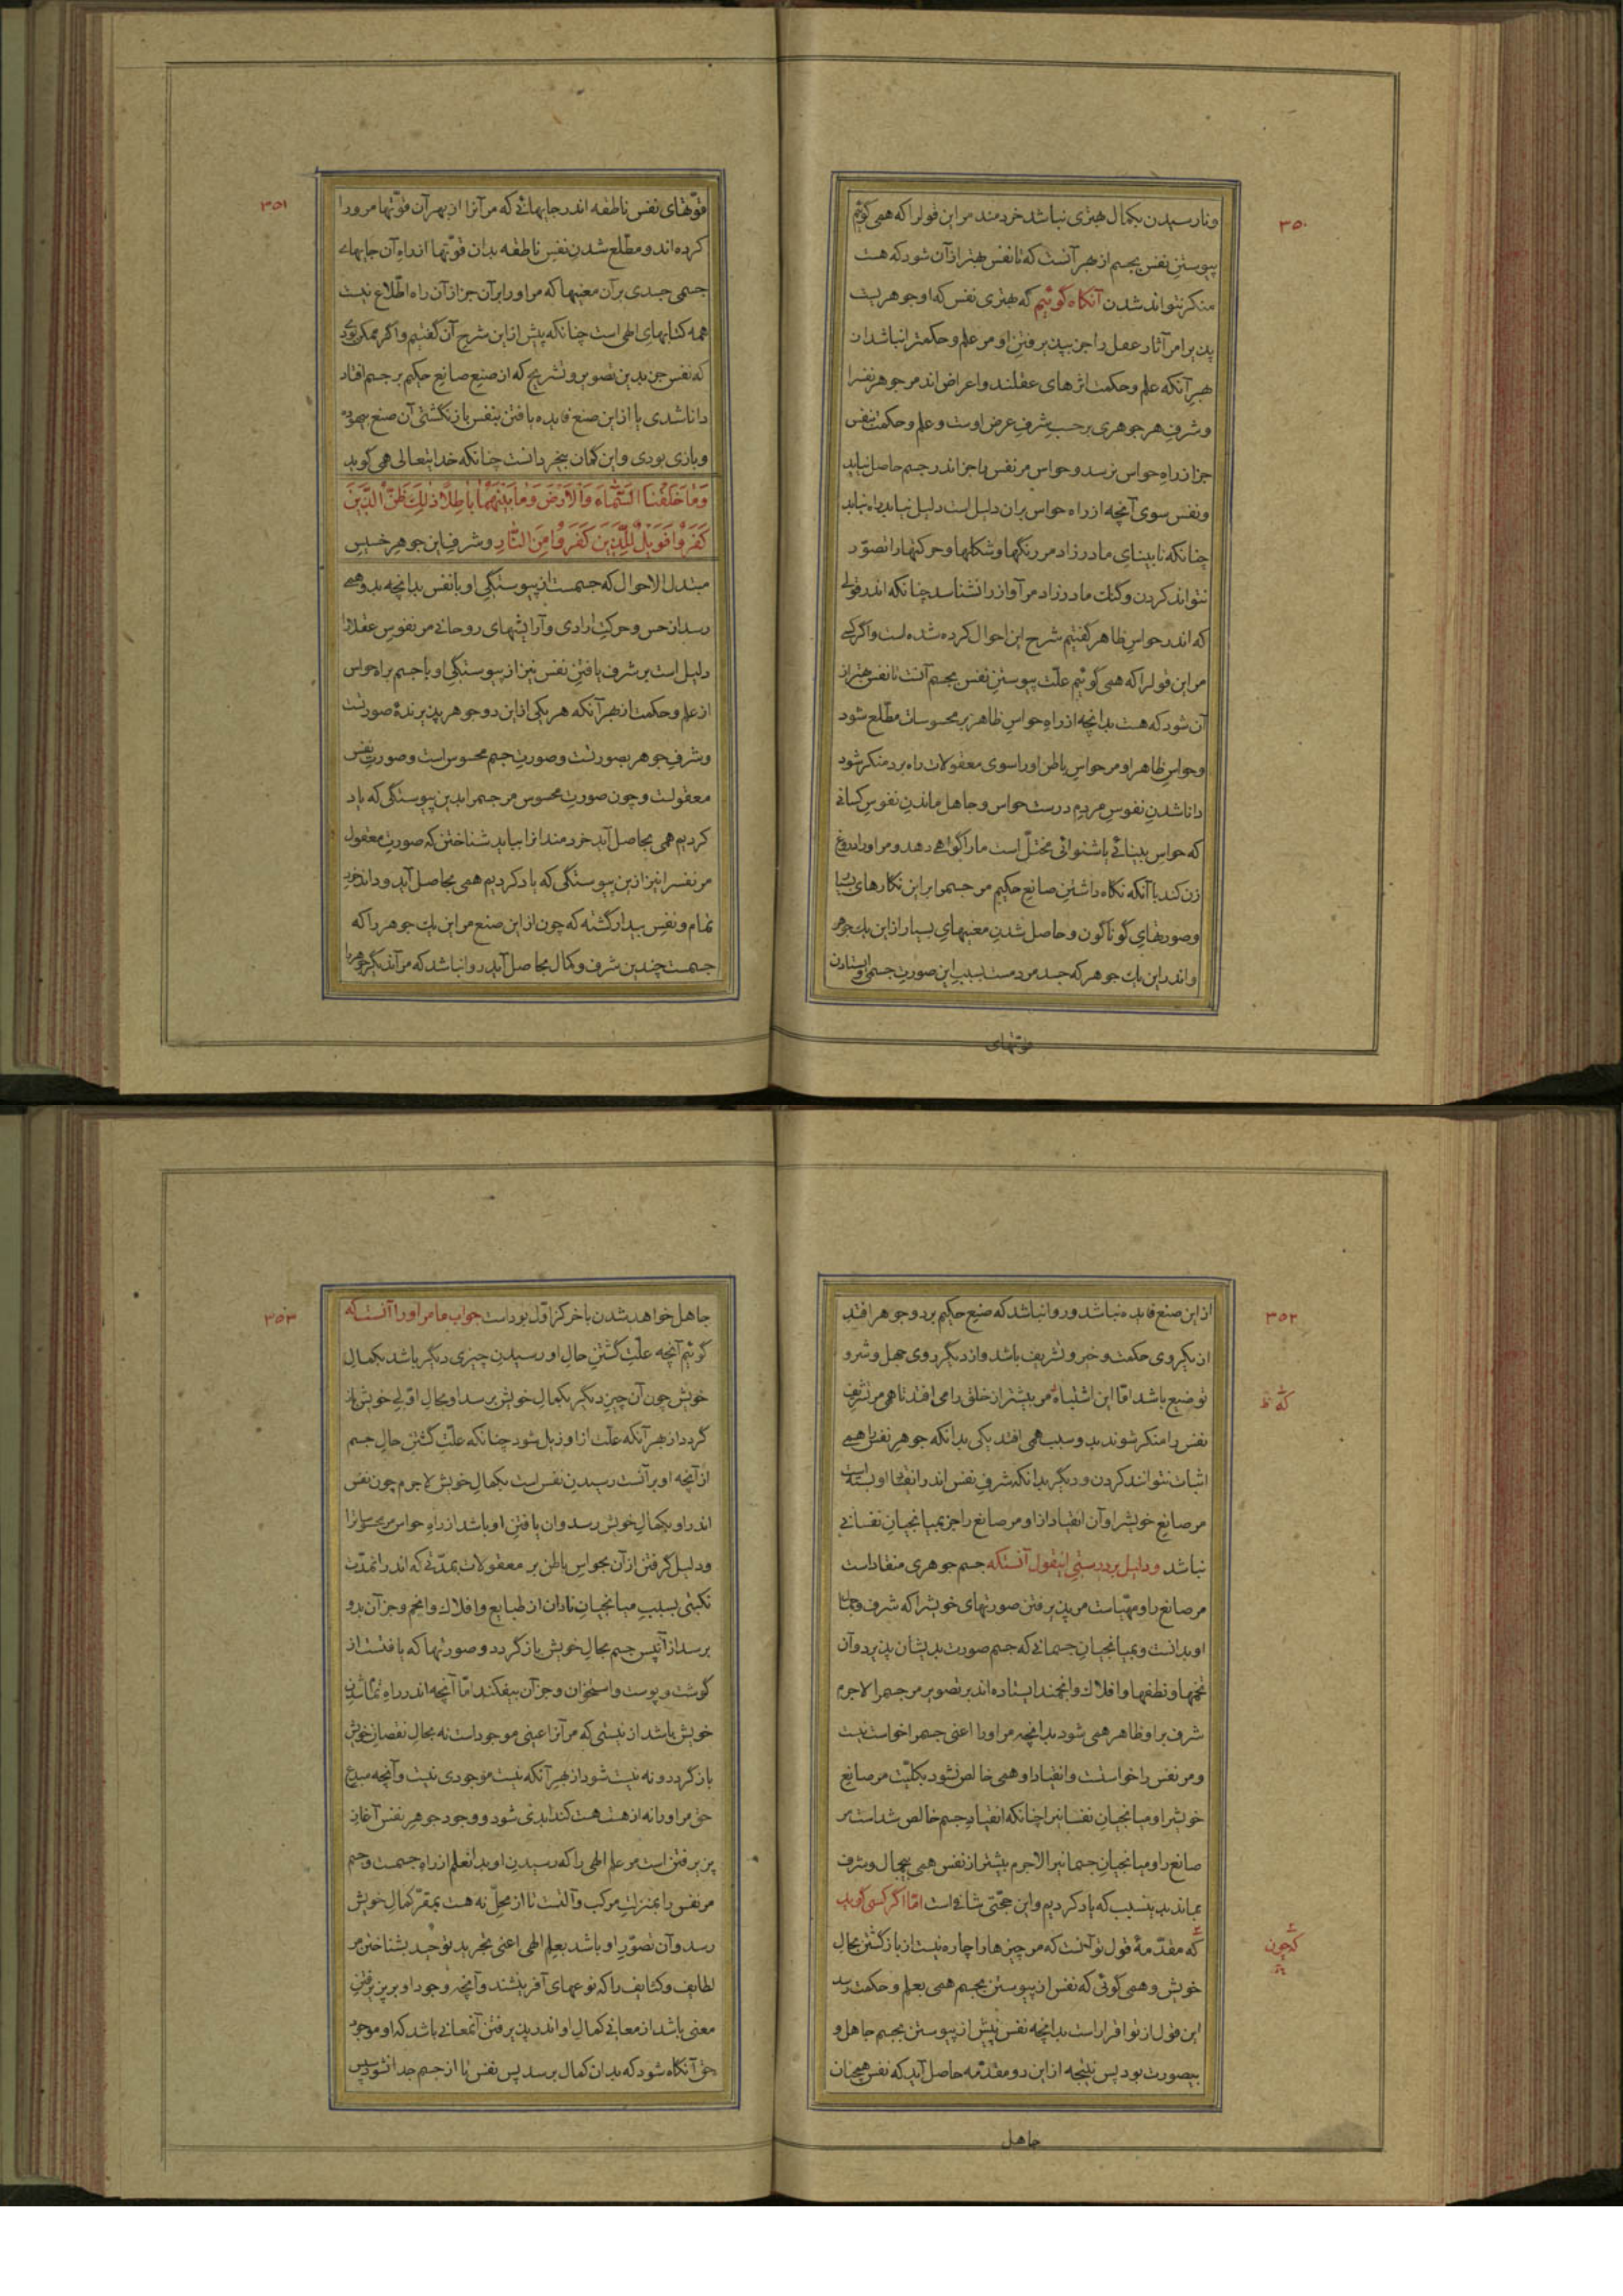 ۳۵۰
ونارسیدن بکمال هنری نباشد خردمند مراین قولرا که همی گوئیم
پیوستن نفس بجسم از بهر آنست که تا نفس بهتر ازآن شود که هست
منکر نتواند شدن آنگاه گوئیم که بهتری نفس که او جوهریست
پذیرا مر آثار عقل را جز بپذیرفتن او مر علم وحکمترا نباشد از
بهر آنکه علم وحکمت اثرهای عقلند واعراض اند مر جوهر نفسرا
وشرف هر جوهری برحسب شرف عرض اوست وعلم وحکمت بنفس
جز از راه حواس نرسد وحواس مر نفس را جز اندر جسم حاصل نیاید
ونفس سوی آنچه از راه حواس بران دلیل است دلیل نیابد راه نیابد
چنانکه نابینای مادرزاد مر رنگها وشکلها وحرکتهارا تصوّر
نتواند کردن وگنگ مادرزاد مر آواز را نشناسد چنانکه اندر قولی
که اندر حواس ظاهر گفتیم شرح این احوال کرده شده است واگر کسی
مراین قولرا که همی گوئیم علّت پیوستن نفس بجسم آنست تا نفس بهتر از
آن شود که هست بدانچه از راه حواس ظاهر بر محسوسات مطّلع شود
وحواس ظاهر او مر حواس باطن اورا سوی معقولات راه برد منکر شود
داناشدن نفوس مردم درست حواس وجاهل ماندن نفوس کسانی
که حواس بینائی یا شنوائی مختلّ است مارا گواهی دهد ومر اورا دروغ
زن کند با آنکه نگاه داشتن صانع حکیم مر جسمرا براین نگارهای زیبا
وصورتهای گوناگون وحاصل شدن معنیهای بسیار ازاین یک جوهر
واندراین یک جوهر که جسد مردمست بسبب این صورت جسمی وایستادن
قوّتهای
۳۵۱
قوّتهای نفس ناطقه اندر جایهائی که مر آنرا از بهر آن قوّتها مرورا
کرده اند ومطّلع شدن نفس ناطقه بدان قوّتها از راه آن جایهای
جسمی جسدی برآن معنیها که مر اورا برآن جز ازآن راه اطّلاع نیست
همه کتابهای الهی است چنانکه پیش ازاین شرح آن گفتیم واگر ممکن بودی
که نفس جز بدین تصویر وتشریح که از صنع صانع حکیم بر جسم افتاد
دانا شدی یا ازاین صنع فایده یافتن بنفس بازنگشتی آن صنع بیهوده
وبازی بودی واین گمان بیخردانست چنانکه خدایتعالی همی گوید
وَمَا خَلَقْنَا السَّمَاءَ وَالْأَرْضَ وَمَا بَيْنَهُمَا بَاطِلًا ذَلِكَ ظَنُّ الَّذِينَ
كَفَرُوا فَوَيْلٌ لِلَّذِينَ كَفَرُوا مِنَ النَّارِ وشرف این جوهر خسیس
مبتدل الاحوال که جسمست از پیوستگی او با نفس بدانچه بدو همی
رسد از حس وحرکت ارادی وآرایشهای روحانی مر نفوس عقلارا
دلیل است بر شرف یافتن نفس نیز از پیوستگی او با جسم براه حواس
از علم وحکمت از بهر آنکه هر یکی ازاین دو جوهر پذیرندهٔ صورتست
وشرف جوهر بصورتست وصورت جسم محسوس است وصورت نفس
معقولست وچون صورت محسوس مر جسمرا بدین پیوستگی که یاد
کردیم همی بحاصل آید خردمندانرا بباید شناختن که صورت معقول
مر نفسرا نیز ازین پیوستگی که یاد کردیم همی بحاصل آید وداند خرد
تمام ونفس بیدار گشته که چون ازاین صنع مراین یک جوهر را که
جسمست چندین شرف وکمال بحاصل آید روا نباشد که مر آن دیگر جوهر را
۳۵۲
ازاین صنع فایده نباشد وروا نباشد که صنع حکیم بر دو جوهر افتد
از یکروی حکمت وخیر وتشریف باشد واز دیگر روی جهل وشر و
توضیع باشد امّا این اشتباه مر بیشتر از خلق را می افتد تا همی مر تشریف
نفس را منکر شوند بدو سبب همی افتد یکی بدانکه جوهر نفس را همی
اثبات نتوانند کردن ودیگر بدانکه شرف نفس اندر انقیاد او بسته است
مر صانع خویشرا وآن انقیاد از او مر صانع را جز بمیانجیان نفسانی
نباشد ودلیل بر درستی اینقول آنستکه جسم جوهری منقاد است
مر صانع را ومهیّاست مر پذیرفتن صورتهای خویشرا که شرف وجمال
او بدانست وبمیانجیان جسمانی که جسم صورت بدیشان پذیرد وآن
تخمها ونطفها وافلاک وانجمند ایستاده اند بر تصویر مر جسمرا لاجرم
شرف براو ظاهر همی شود بدانچه مر اورا اعنی جسمرا خواست نیست
ومر نفس را خواستست وانقیاد او همی خالص نشود بکلّیت مر صانع
خویشرا ومیانجیان نفسانیرا چنانکه انقیاد جسم خالص شداست مر
صانع را ومیانجیان جسمانیرا لاجرم بیشتر از نفس همی بیجمال وشرف
بماند بدینسبب که یاد کردیم واین حجّتی شافی است امّا اگر کسی گوید
که مقدّمهٔ قول تو آنست که مر چیزهارا چاره نیست از بازگشتن بحال
خویش وهمی گوئی که نفس از پیوستن بجسم همی بعلم وحکمت رسد
این قول از تو اقرار است بدانچه نفس پیش از پیوستن بجسم جاهل و
بیصورت بود پس نتیجه ازاین دو مقدّمه حاصل آید که نفس همچنان
که ظ
که چون
جاهل
۳۵۳
جاهل خواهد شدن بآخر کز اوّل بوداست جواب ما مر اورا آنستکه
گوئیم آنچه علّت گشتن حال او رسیدن چیزی دیگر باشد بکمال
خویش چون آن چیز دیگر بکمال خویش برسد او بحال اوّلی خویش باز
گردد از بهر آنکه علّت از او زایل شود چنانکه علّت گشتن حال جسم
ازآنچه او برآنست رسیدن نفس است بکمال خویش لاجرم چون نفس
اندراو بکمال خویش رسد وان یافتن او باشد از راه حواس مر محسوساترا
ودلیل گرفتن ازآن بحواس باطن بر معقولات بمدّتی که اندر انمدّت
نکبتی بسبب میانجیان نادان از طبایع وافلاک وانجم وجز آن بدو
برسد از آنپس جسم بحال خویش باز گردد وصورتها که یافتست از
گوشت وپوست واستخوان وجز آن بیفکند امّا آنچه اندر راه تمام شدن
خویش باشد از نیستی که مر آنرا عینی موجود است نه بحال نقصان خویش
باز گردد ونه نیست شود از بهر آنکه نیست موجودی نیست وآنچه مبدع
حق مر اورا نه از هست هست کند ابدی شود ووجود جوهر نفس آغاز
پزیرفتن است مر علم الهی را که رسیدن او بدانعلم از راه جسمست وجسم
مر نفس را بمنزلت مرکب وآلتست تا از محلّ نه هست بمقرّ کمال خویش
رسد وآن تصوّر او باشد بعلم الهی اعنی تجرید توحید بشناختن مر
لطایف وکثایف را که نوعهای آفرینشند وآنچه وجود او بر پزیرفتن
معنی باشد از معانی کمال او اندر پذیرفتن آنمعانی باشد که او موجود
حق آنگاه شود که بدان کمال برسد پس نفس تا از جسم جدا نشود پس